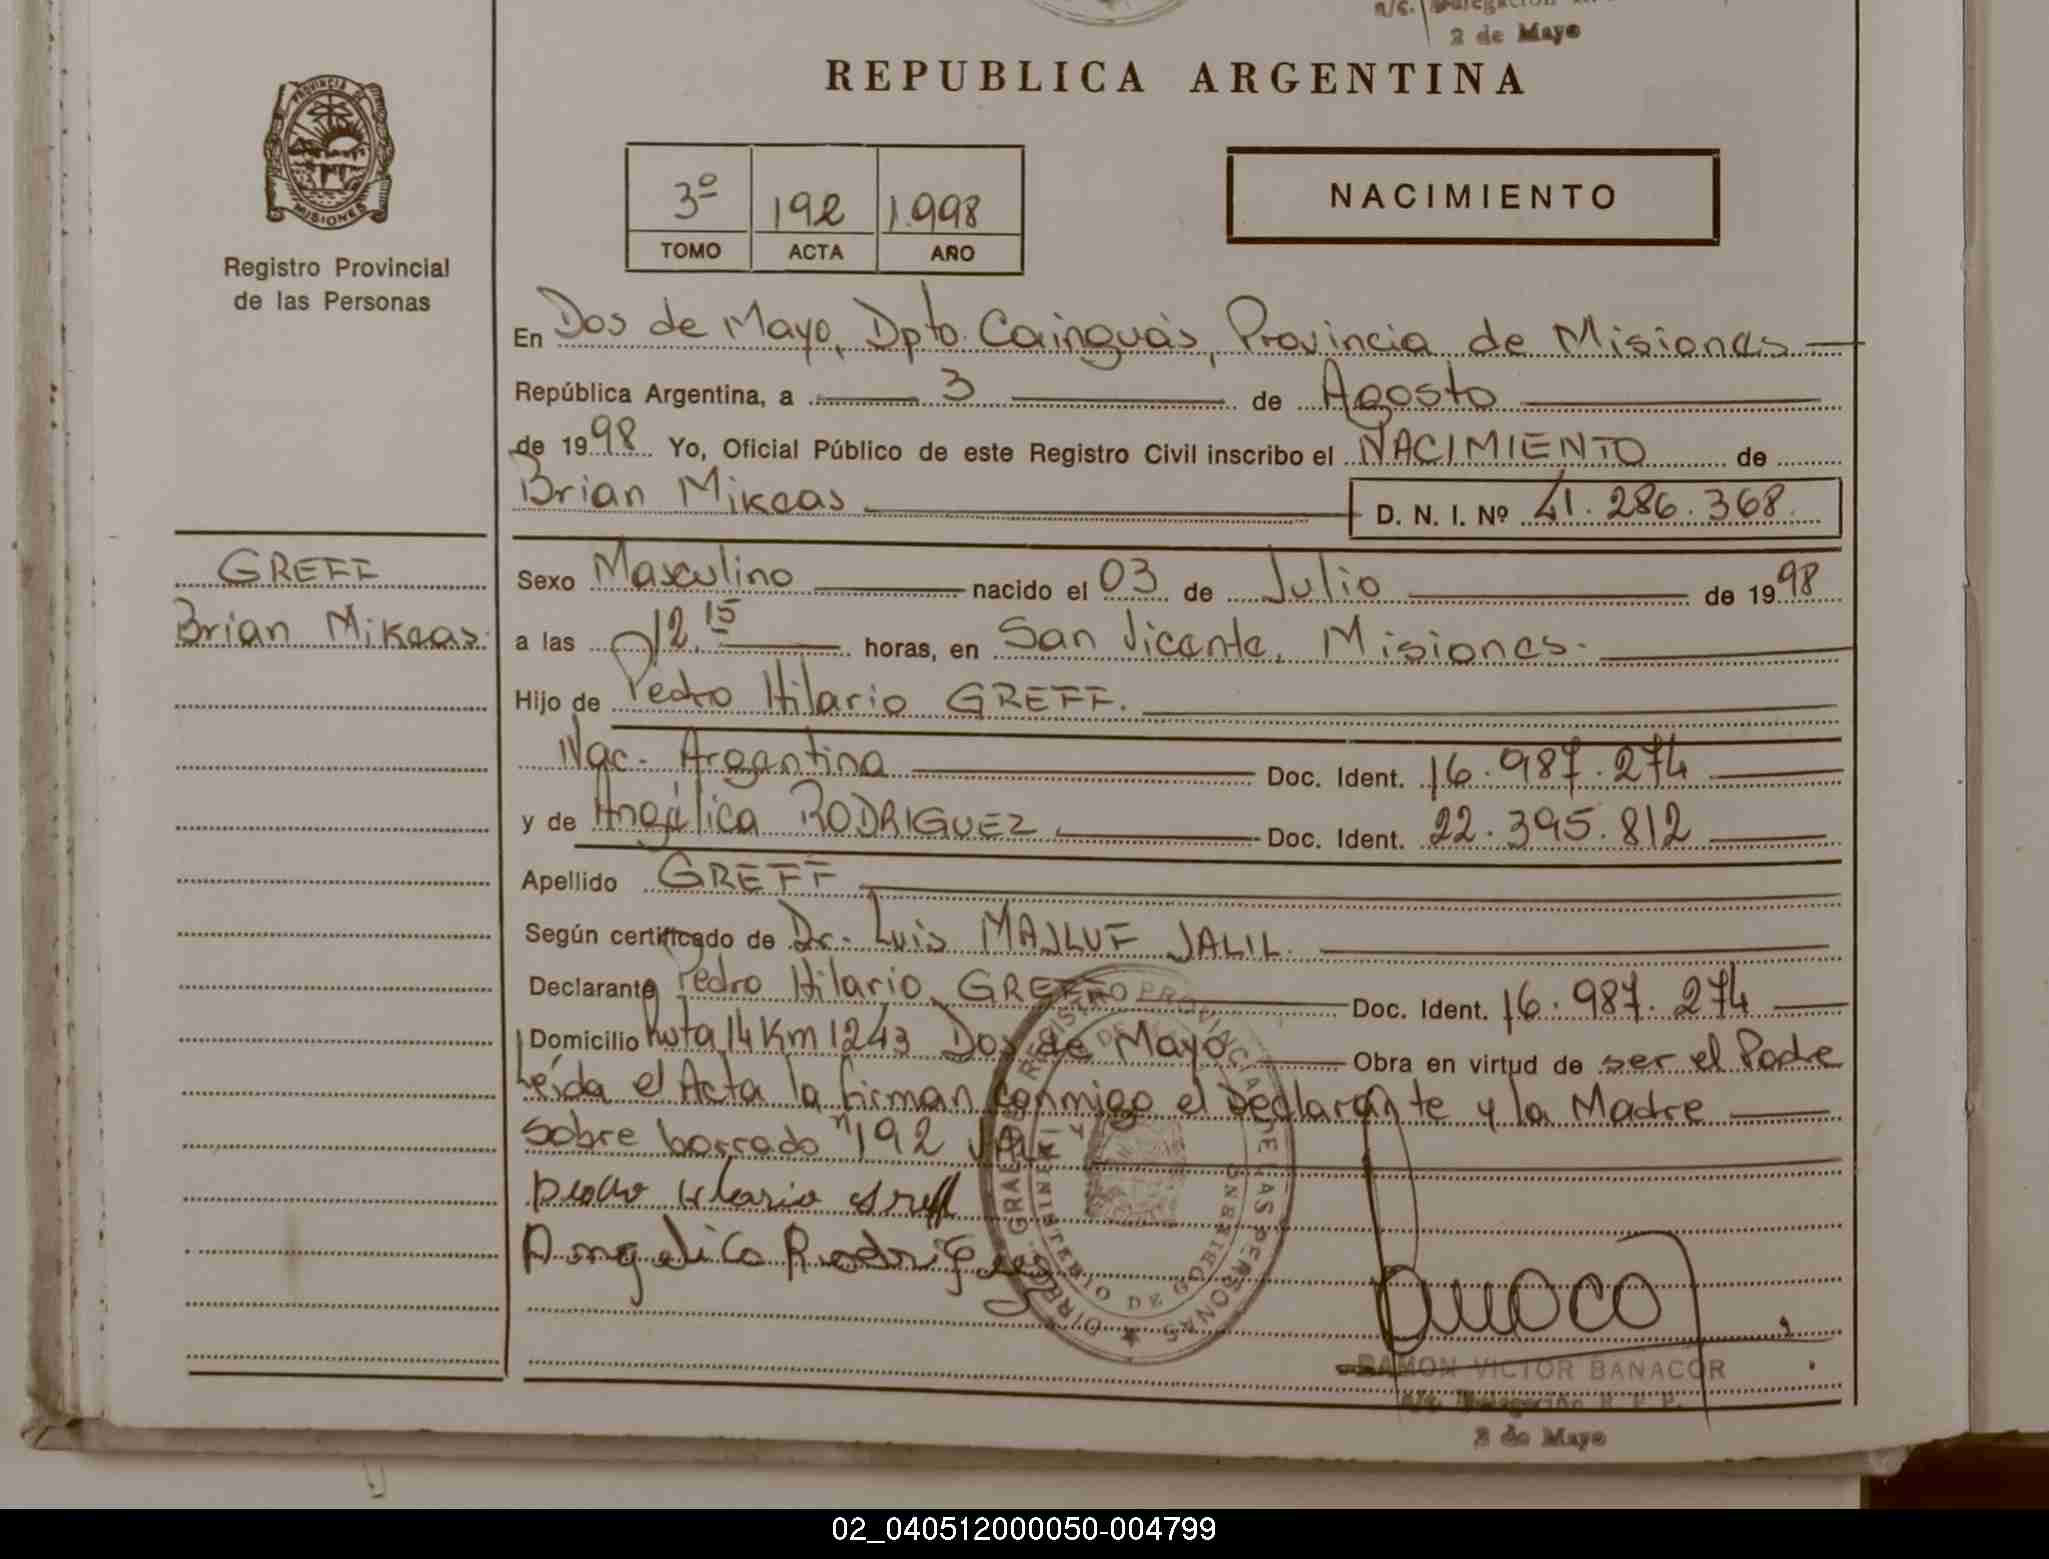 2 de Mayo
REPUBLICA ARGENTINA
PROVINCIA DE
MISIONES
Registro Provincial
de las Personas
3º 192 1.998
TOMO ACTA AÑO
NACIMIENTO
En Dos de Mayo, Dpto. Cainguás, Provincia de Misiones
República Argentina, a 3 de Agosto
de 1998 Yo, Oficial Público de este Registro Civil inscribo el NACIMIENTO de
Brian Mikeas D. N. I. Nº 41.286.368.
GREFF
Brian Mikeas.
Sexo Masculino nacido el 03 de Julio de 1998
a las 12.15 horas, en San Vicente, Misiones.
Hijo de Pedro Hilario GREFF.
Nac. Argentina Doc. Ident. 16.987.274
y de Angélica RODRIGUEZ Doc. Ident. 22.395.812
Apellido GREFF
Según certificado de Dr. Luis MAJLUF JALIL.
Declarante Pedro Hilario GREFF Doc. Ident. 16.987.274
Domicilio Ruta 14 Km 1243 Dos de Mayo Obra en virtud de ser el Padre
Leída el Acta la firman conmigo el Declarante y la Madre
Sobre borrado "192 Vale
Pedro Hilario Greff
Angelica Rodriguez
REGISTRO PROVINCIAL DE LAS PERSONAS
MINISTERIO DE GOBIERNO
RAMON VICTOR BANACOR
a/c. Delegación R. P. P.
2 de Mayo
02_040512000050-004799